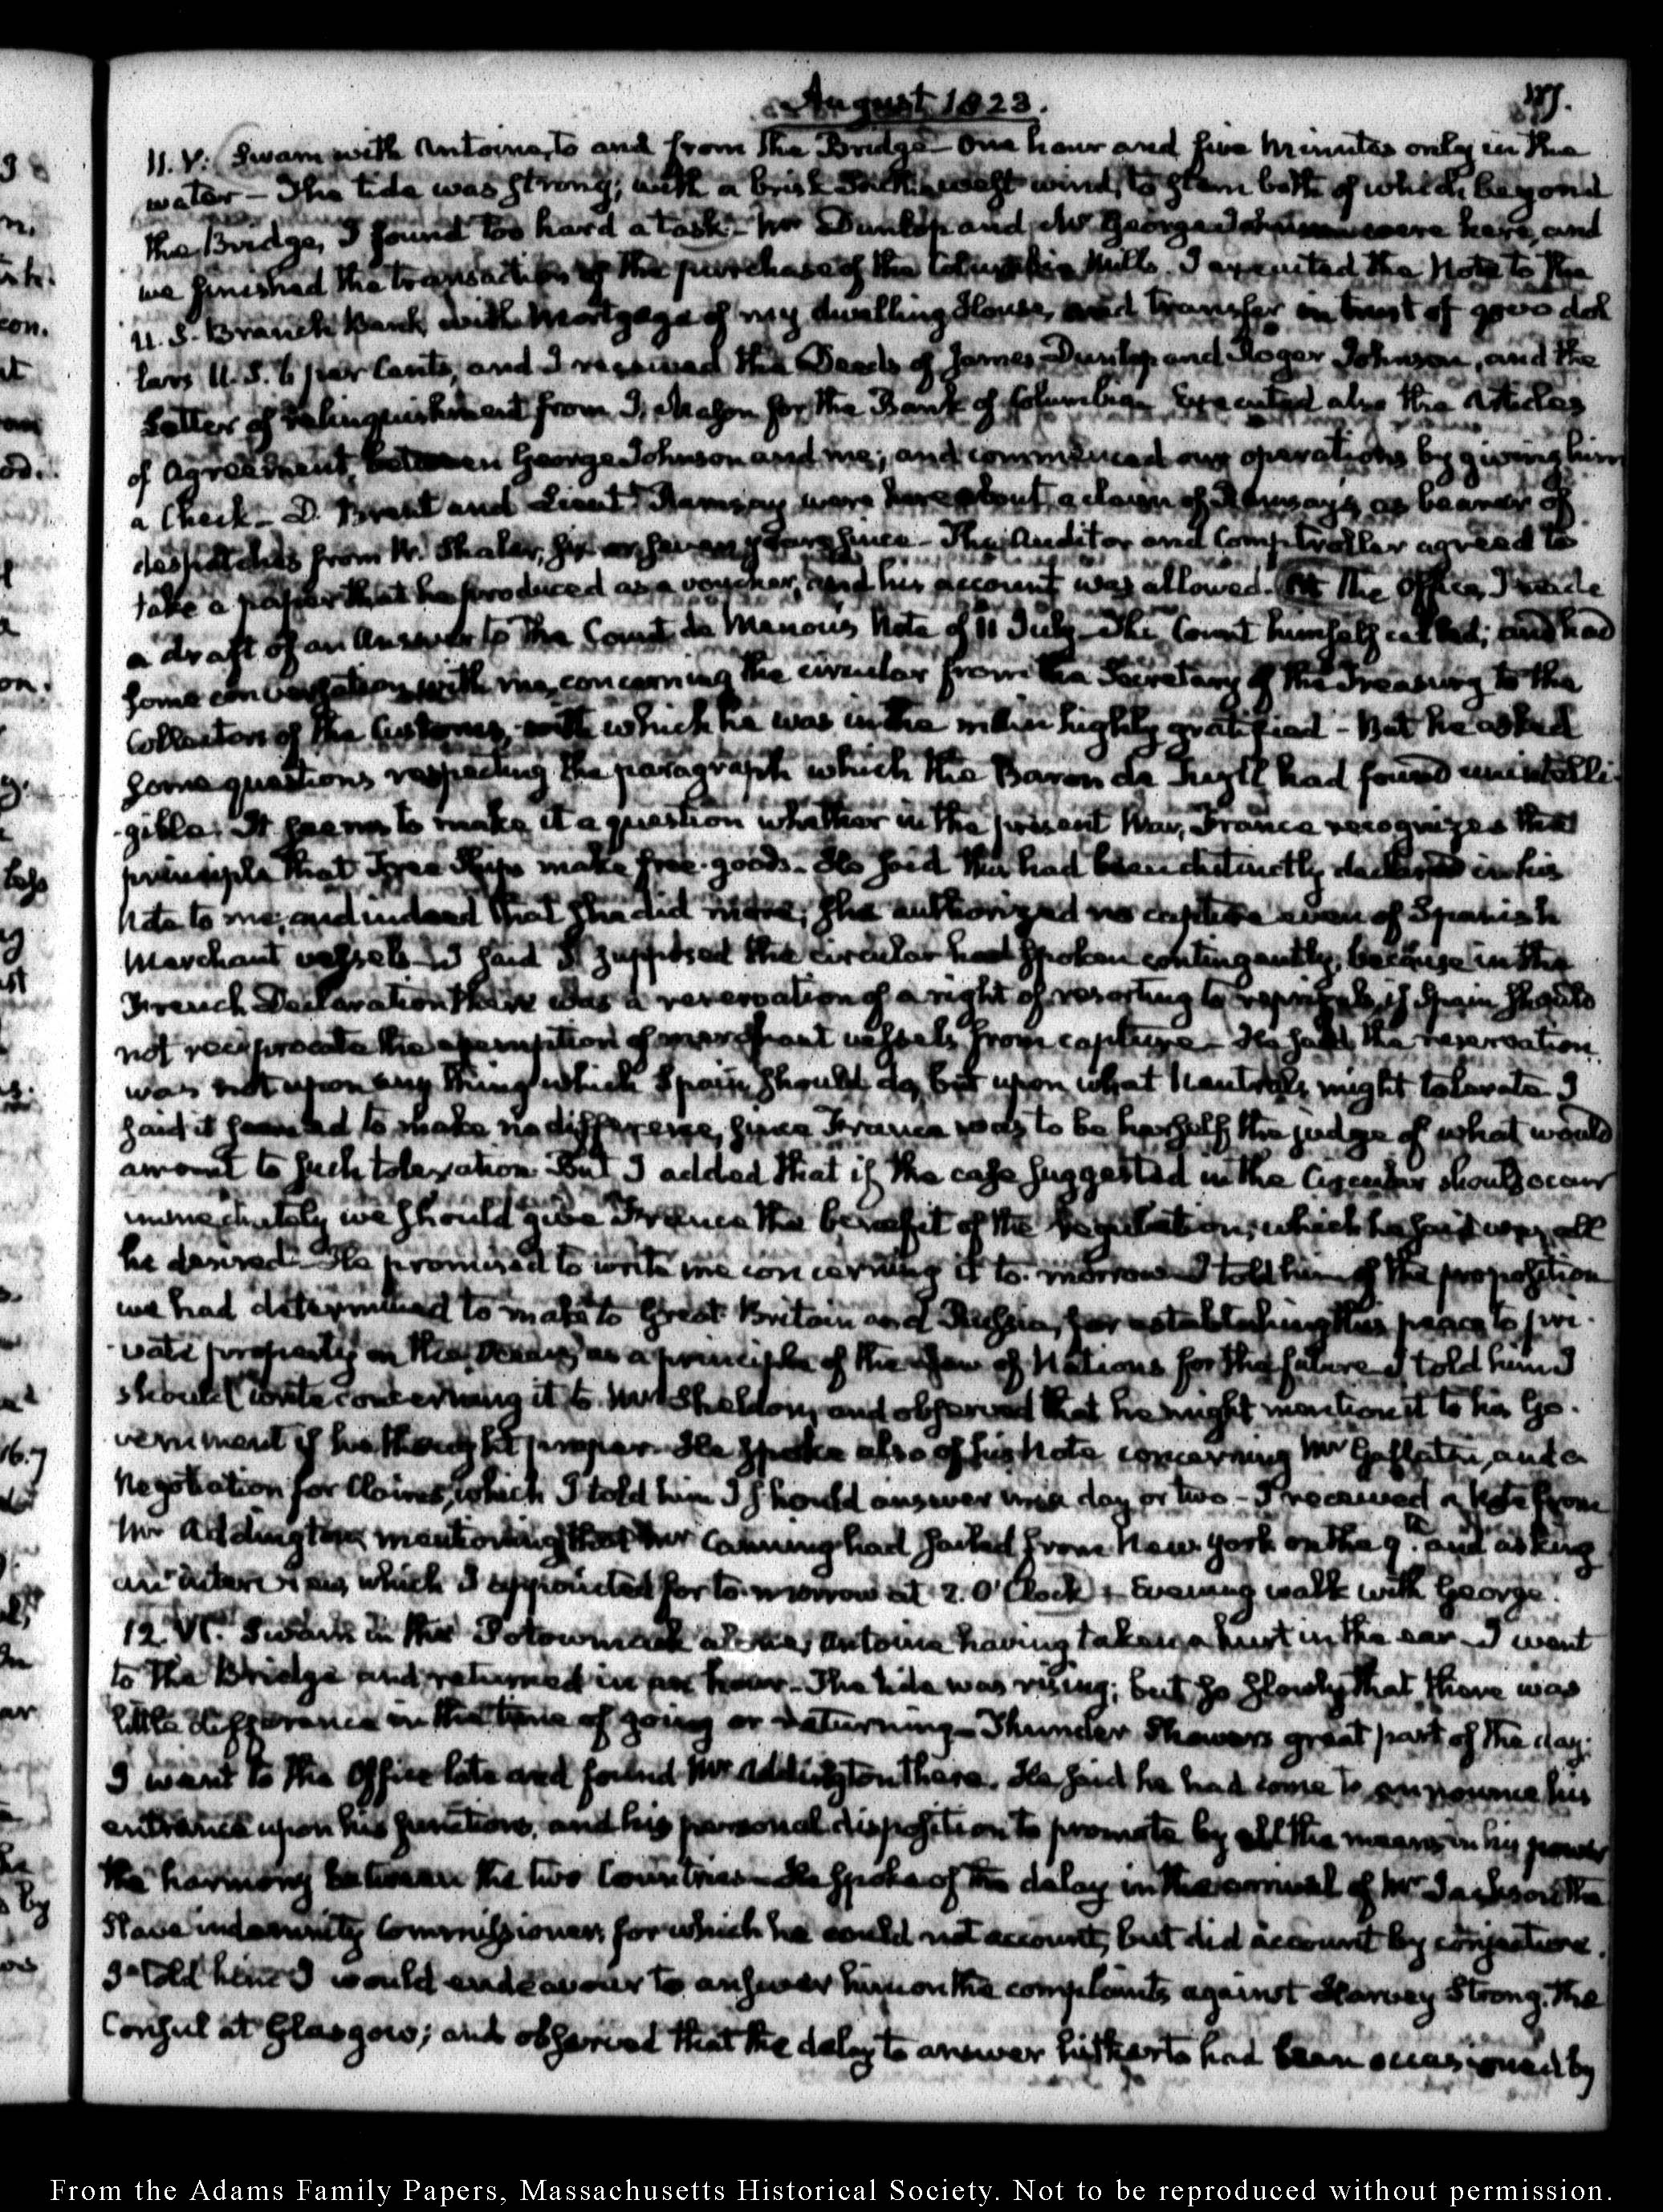 August 1823.
11. V: Swam with Antoine, to and from the Bridge — One hour and five minutes only in the
water — The tide was strong; with a brisk South west wind, to stem both of which beyond
the Bridge, I found too hard a task — Mr Dunlop and Mr George Johnson were here, and
we finished the transaction of the purchase of the Columbia Mills. I executed the Note to the
U.S. Branch Bank, with Mortgage of my dwelling House, and transfer in trust of 9000 dol
lars U.S. 6 per Cents, and I received the Deeds of James Dunlop and Roger Johnson, and the
Letter of relinquishment from J. Mason for the Bank of Columbia — Executed also the Articles
of Agreement, between George Johnson and me; and commenced our operations by giving him
a Check — D. Brent and Lieutt. Ramsay were here about a claim of Ramsay's as bearer of
despatches from W. Shaler, six or seven years since — The Auditor and Comptroller agreed to
take a paper that he produced as a voucher, and his account was allowed. At the Office, I made
a draft of an Answer to the Count de Menou's Note of 11 July — The Count himself called; and had
some conversation with me, concerning the circular from the Secretary of the Treasury to the
Collectors of the Customs, with which he was in the main highly gratified — But he asked
some questions respecting the paragraph which the Baron de Tuyll had found unintelli-
-gible. It seems to make it a question whether in the present War, France recognizes the
principle that Free Ships make free goods — He said this had been distinctly declared in his
Note to me; and indeed that she did more, she authorized no capture even of Spanish
Merchant vessels — I said I supposed the circular had spoken contingently, because in the
French Declaration there was a reservation of a right of resorting to reprisals, if Spain should
not reciprocate the exemption of merchant vessels from capture — He said, the reservation
was not upon any thing which Spain should do, but upon what Neutrals might tolerate. I
said it seemed to make no difference, since France was to be herself the judge of what would
amount to such toleration. But I added that if the case suggested in the Circular should occur
immediately we should give France the benefit of the regulation; which he said was all
he desired — He promised to write me concerning it to-morrow — I told him of the proposition
we had determined to make to Great Britain and Russia, for establishing this peace to pri-
-vate property on the Ocean, as a principle of the Law of Nations for the future — I told him I
should write concerning it to Mr Sheldon, and observed that he might mention it to his Go-
vernment if he thought proper — He spoke also of his Note concerning Mr Gallatin, and a
Negotiation for Claims, which I told him I should answer in a day or two — I received a Note from
Mr Addington, mentioning that Mr Canning had sailed from New York on the 9th. and asking
an interview, which I appointed for to-morrow at 2. O'Clock — Evening walk with George.
12. VI. Swam in the Potowmack alone, Antoine having taken a hurt in the ear — I went
to the Bridge and returned in an hour — The tide was rising; but so slowly that there was
little difference in the time of going or returning — Thunder Showers great part of the day.
I went to the Office late and found Mr Addington there. He said he had come to announce his
entrance upon his functions, and his personal disposition to promote by all the means in his power
the harmony between the two Countries — He spoke of the delay in the arrival of Mr Jackson the
Slave indemnity Commissioner; for which he could not account, but did account by conjecture.
I told him I would endeavour to answer him on the complaints against Harvey Strong, the
Consul at Glasgow; and observed that the delay to answer hitherto had been occasioned by
From the Adams Family Papers, Massachusetts Historical Society. Not to be reproduced without permission.